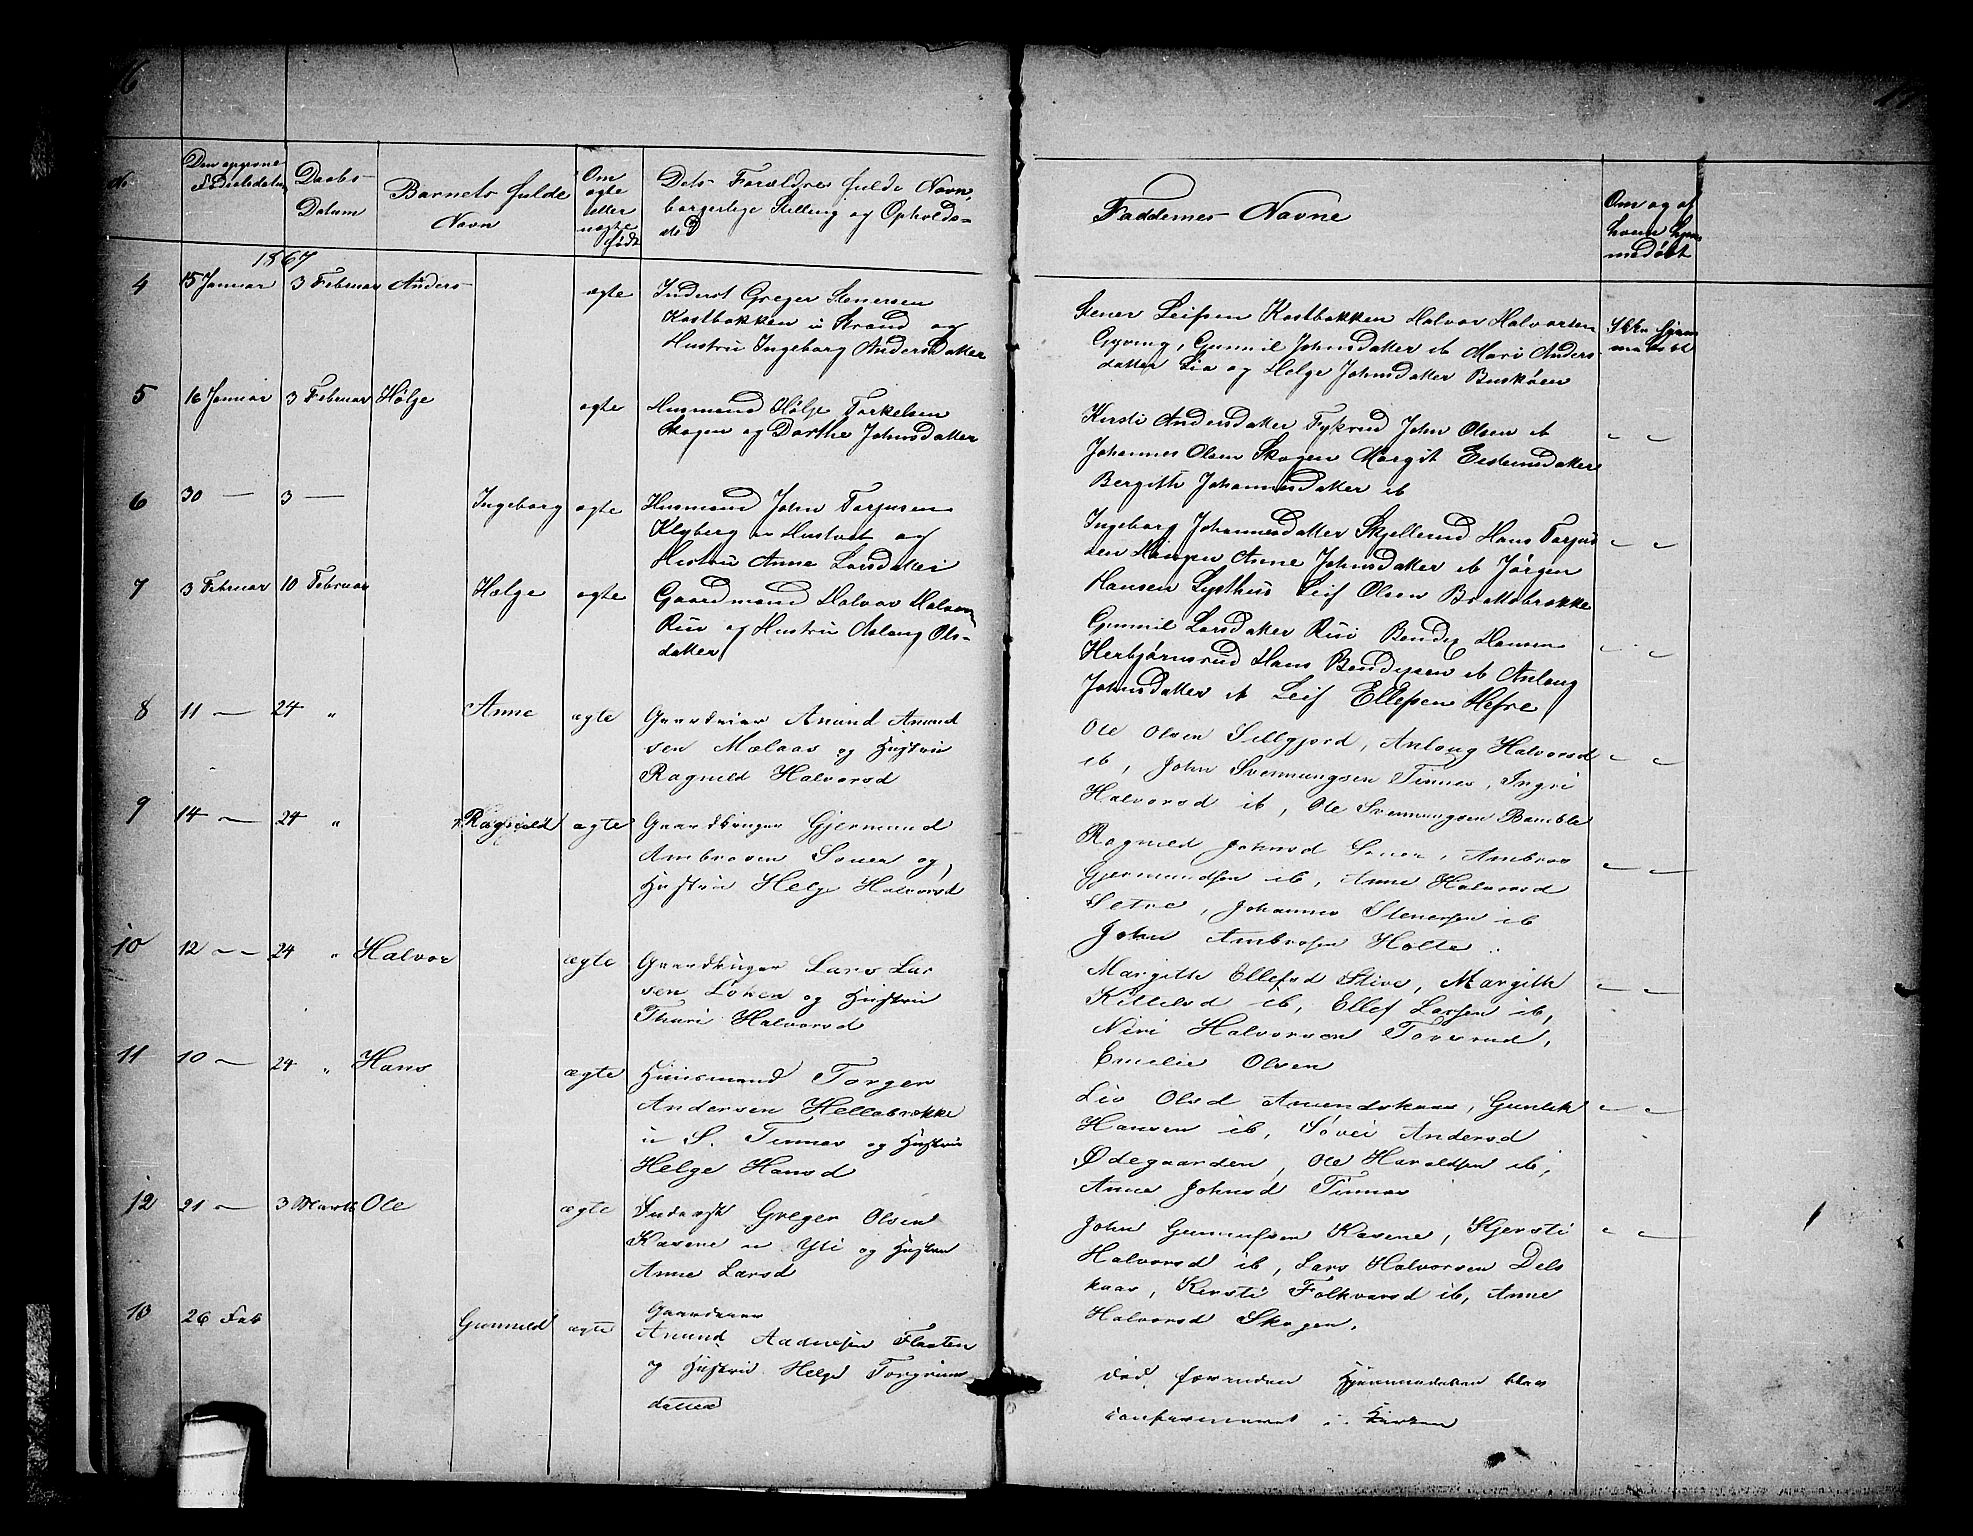 16
17
No
Den opgivne Fødselsdatum
Daabs-Datum
Barnets fulde Navn
Om ægte eller uægte født
Dets Forældres fulde Navn, borgerlige Stilling og Opholdssted
Faddernes Navne
Om og af hvem hjemmedøbt
1867
4 15 Januar 3 Februar Anders ægte Inderst Greger Stenersen
Kostbakken u Strand og
Hustru Ingeborg Andersdatter
Stener Leifsen Kostbakken Halvor Halvorsen
Gyving, Gunnil Johnsdatter ib Mari Anders
datter Lia og Helge Johnsdatter Buskøen
Ikke hjemmedøbt
5 16 Januar 3 Februar Hølje ægte Husmand Hølje Torkelsen
Skogen og Dorthe Johnsdatter
Kirsti Andersdatter Fykerud John Olsen ib
Johannes Olsen Skogen Margit Eisteinsdatter
Bergith Johannesdatter ib
6 30 — 3 — Ingeborg ægte Husmand John Torjusen
Klyberg u Hustvet og
Hustru Anne Larsdatter
Ingeborg Johannesdatter Skjellerud Hans Torjus
sen Anne Johnsdatter ib Jørgen
Hansen Lysthus Leif Olsen Brattebrække
7 3 Februar 10 Februar Helge ægte Gaardmand Halvor Halvors
Rui og Hustru Aslaug Ols-
datter
Gunnil Larsdatter Rui Bendix Hansen
Herbjørnsrud Hans Bendixsen ib Anlaug
Johnsdatter ib Leif Ellefsen Hefre
8 11 — 24 " Anne ægte Gaardeier Anund Anund
sen Mælaas og Hustru
Ragnild Halvorsd
Ole Olsen Sillgjord, Anlaug Halvorsd
ib, John Svennungsen Tinnes, Ingri
Halvorsd ib, Ole Svennungsen Bamble
9 14 — 24 " Ragnild ægte Gaardbruger Gjermund
Ambrosen Soner og
Hustru Helge Halvorsd
Ragnild Johnsd Soner, Ambros
Gjermundsen ib, Anne Halvorsd
Setre, Johannes Stenersen ib
John Ambrosen Holte.
10 12 — 24 " Halvor ægte Gaardbruger Lars Lar
sen Løken og Hustru
Thuri Halvorsd
Margith Ellefsd Stivi, Margith
Kittelsd ib, Ellef Larsen ib,
Niri Halvorson Toverud,
Emelie Olsen
11 10 — 24 " Hans ægte Huusmand Torger
Andersen Hellebrekke
u S. Tinnes og Hustru
Helge Hansd
Liv Olsd Amundskaas, Gunlek
Hansen ib, Søvei Andersd
Ødegaarden, Ole Haraldsen ib,
Anne Johnsd Tinnes
12 21 — 3 Marts Ole ægte Inderst Greger Olsen
Kasene u Yli og Hustru
Anne Larsd
John Gunnulfsen Kasene, Kjersti
Halvorsd ib, Lars Halvorsen Dels
kaas, Kersti Folkvarsd ib, Anne
Halvorsd Skogen.
13 26 Feb Gunnild ægte Gaardeier
Anund Aadnesen Flaaten
og Hustru Helge Torgrims
datter
død, forinden Hjemmedaaben blev
confirmeret i Kirken